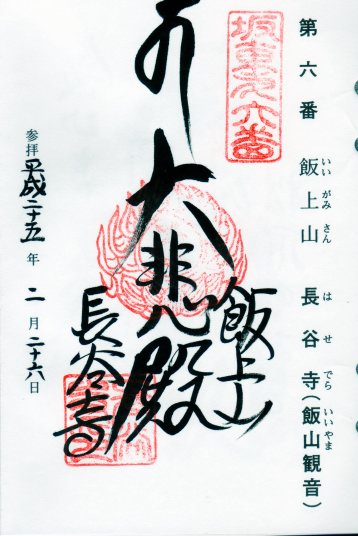 第六番 飯上山 長谷寺(飯山観音)
いいがみさん はせでら いいやま
坂東第六番
大悲殿
飯上山
長谷寺
参拝 平成二十五年 二月二十六日